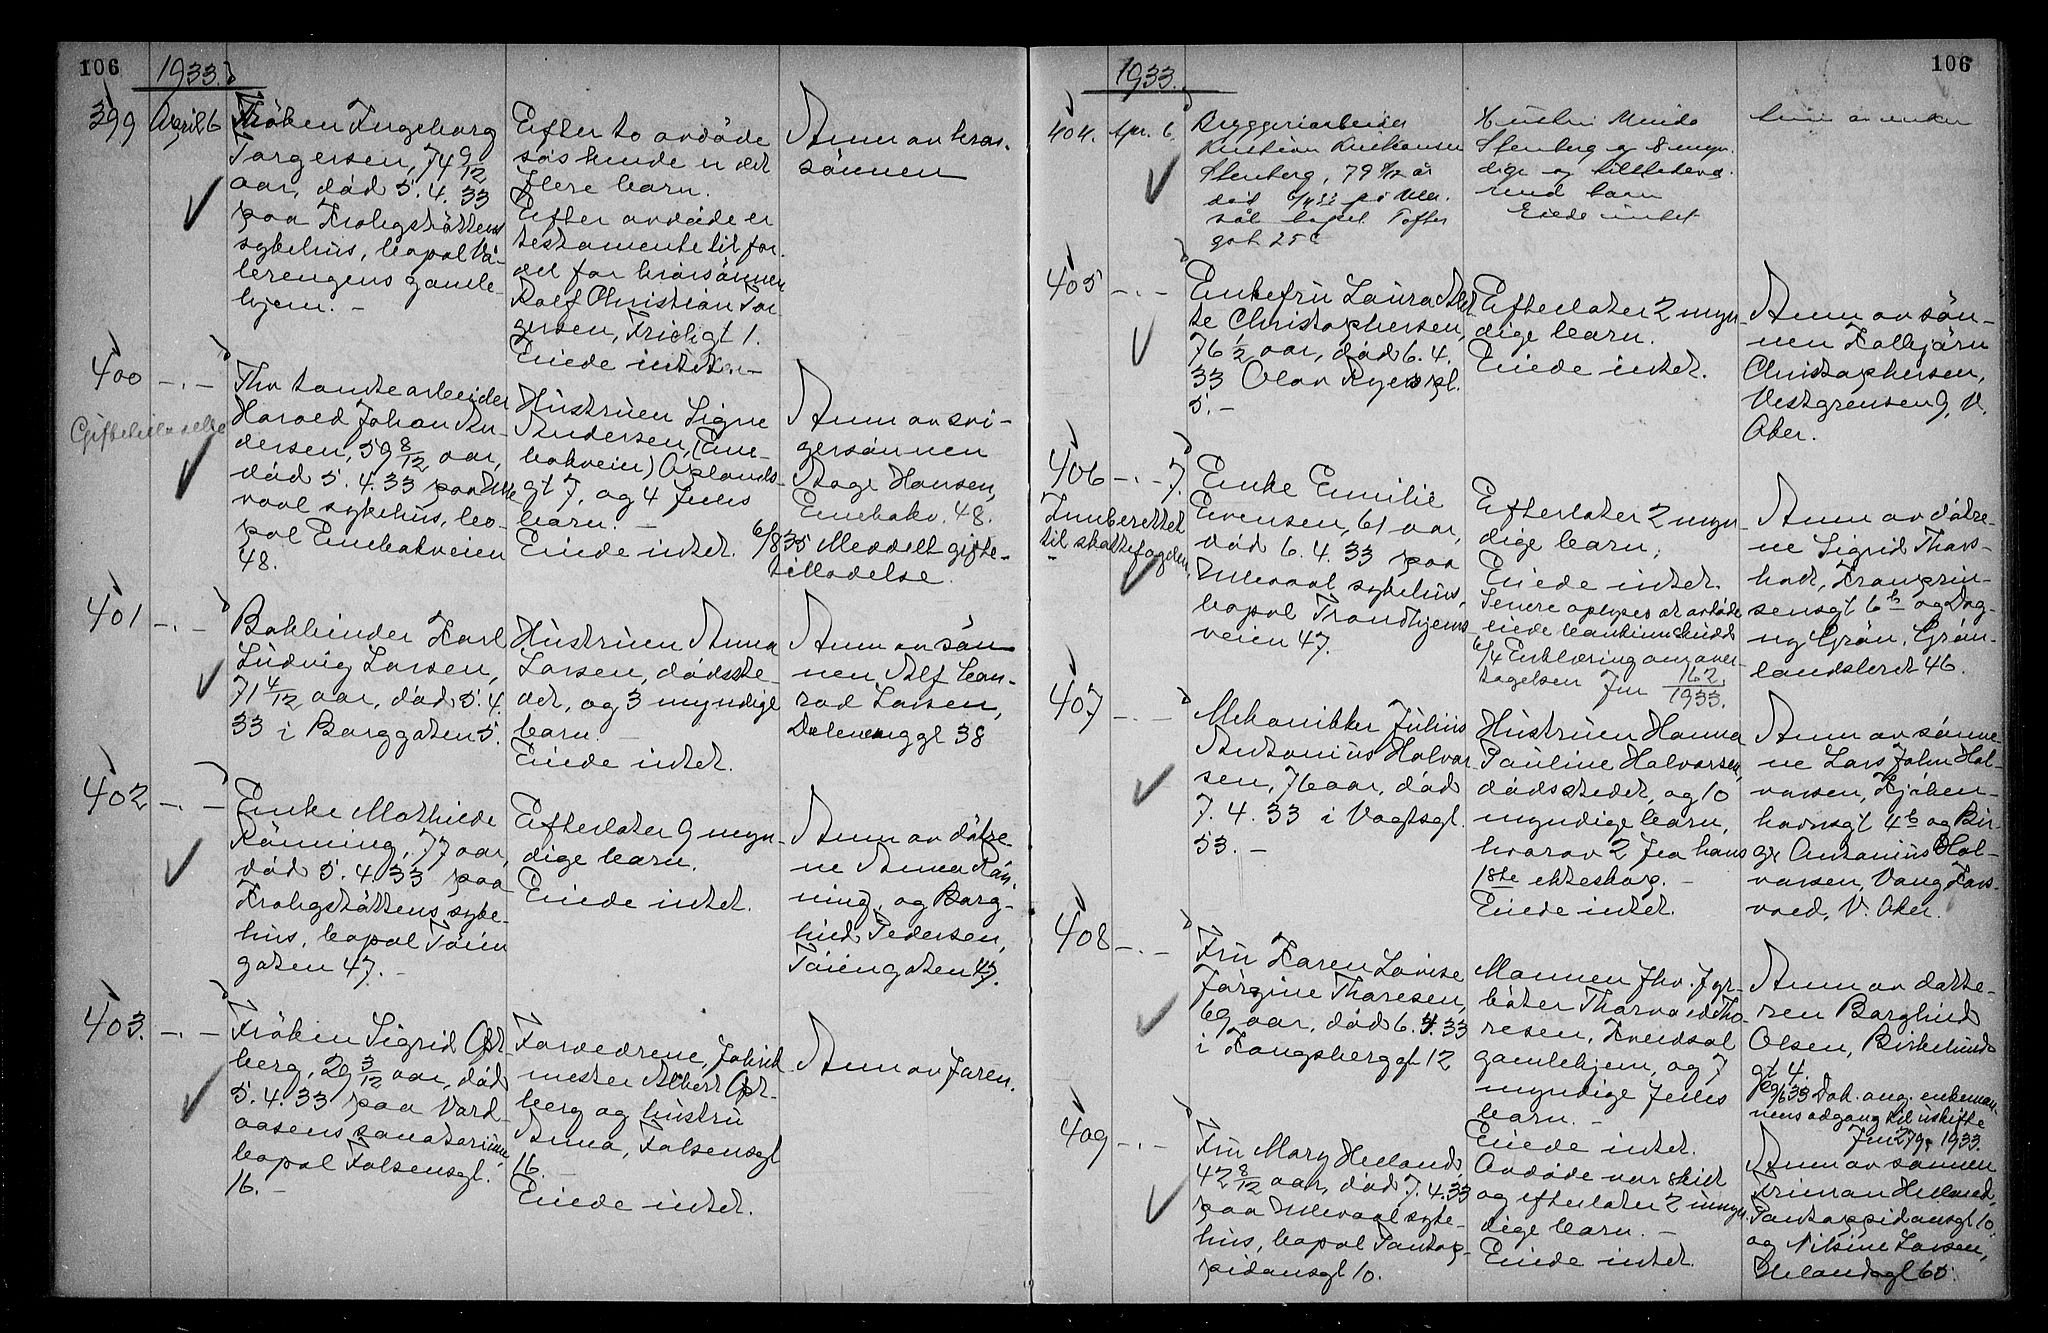 106
1933.
399
April 6
Fröken Ingeborg
Torgersen, 74 9/12
aar, död 5.4.33
paa Krohgstöttens
sykehus, bopæl Vå-
lerengens gamle-
hjem. -
Efter to avdöde
söskende er det
flere barn.
Efter avdöde er
testamente til for-
del for brorsönnen
Rolf Christian Tor
gersen, Frichgt 1.
Eiede intet. -
Anm av bror-
sönnen
400
- . -
Giftetilladelse
Fhv tomtearbeider
Harald Johan An-
dersen, 59 8/12 aar,
död 5.4.33 paa Ulle
vaal sykehus, bo-
pæl Enebakveien
48.
Hustruen Signe
Andersen, (Ene-
bakveien) Oplands-
gt 7, og 4 fælles
barn. -
Eiede intet.
Anm av svi-
gersönnen
Aage Hansen,
Enebakv. 48.
6/8 35 Meddelt gifte-
tilladelse.
401
- . -
Bokbinder Karl
Ludvig Larsen,
71 4/12 aar, död 5.4.
33 i Borggaten 5.
Hustruen Anna
Larsen, dödsste-
det, og 3 myndige
barn. -
Eiede intet.
Anm av sön
nen Alf Con-
rad Larsen,
Dalenenggt 38
402
- . -
Enke Mathilde
Rönning, 77 aar,
död 5.4.33 paa
Krohgstöttens syke-
hus, bopæl Töien
gaten 47. -
Efterlater 9 myn-
dige barn.
Eiede intet.
Anm av dötre
ne Anna Rön-
ning, og Borg-
hild Pedersen,
Töiengaten 47.
403.
- . -
Fröken Sigrid Ost-
berg, 29 3/12 aar, död
5.4.33 paa Vard-
aasens sanatorium,
bopæl Falsensgt.
16. -
Forældrene, fabrik
mester Albert Ost-
berg og hustru
Anna, Falsensgt
16. -
Eiede intet.
Anm av faren.
106
1933.
404.
Apr. 6.
Bryggeriarbeider
Kristian
Stenberg, 79 8/12 år
död 6/4 33 på Ulle-
vål bopæl Toftes
gat 25 c
Hustru
Stenberg og 8 myn-
dige og tilstede-
barn
Eiede intet
405
- . -
Enkefru Laura
te Christophersen,
76 1/2 aar, död 6.4.
33 Olav Ryes pl.
5. -
Efterlater 2 myn-
dige barn.
Eiede intet.
Anm av sön-
nen Kolbjörn
Christophersen,
Vestgrensen 9, V.
Aker.
406
- . - 7.
Innberettet
til skattefogden
Enke Emilie
Evensen, 61 aar,
död 6.4.33 paa
Ullevaal sykehus,
bopæl Trondhjems
veien 47.
Efterlater 2 myn-
dige barn.
Eiede intet.
Senere oplyses at avdöde
eiede bankinnskudd
6/4 Erklæring om over-
tagelsen Jnr 162/1933.
Anm av dötre-
ne Sigrid Thors-
hart, Kronprin-
sensgt 6 b og Dag-
ny Grön, Grön-
landsleret 46.
407
- . -
Mekanikker Julius
Antonius Halvor
sen, 76 aar, död
7.4.33 i Vogtsgt.
53. -
Hustruen Hanna
Pauline Halvorsen,
dödsstedet, og 10
myndige barn,
hvorav 2 fra hans
1ste ekteskap. -
Eiede intet.
Anm av sönne-
ne Lars John Hal-
vorsen, Kjöben-
havnsgt 4 b og Bir-
ger Antonius Hal-
vorsen, Vang
V. Aker.
408
- . -
Fru Karen Lovise
Jörgine Thoresen,
69 aar, död 6.4.33
i Tongsberggt 12
Mannen fhv. fyr-
böter Thorvald Tho-
resen, Kveldsol
gamlehjem, og 7
myndige fælles
barn. -
Eiede intet.
Anm av datte-
ren Borghild
Olsen, Birkelunds
gt 4.
29/6 33 Dok. ang. enkeman-
nens adgang til uskifte
Jnr 279, 1933.
409
- . -
Fru Mary Helland,
42 8/12 aar, död 7.4.33
paa Ullevaal syke-
hus, bopæl Pontop-
pidansgt 10.
Avdöde var skilt
og efterlater 2 myn-
dige barn. -
Eiede intet.
Anm av sönnen
Helland,
Pontoppidansgt 10,
og Nilsine Larsen,